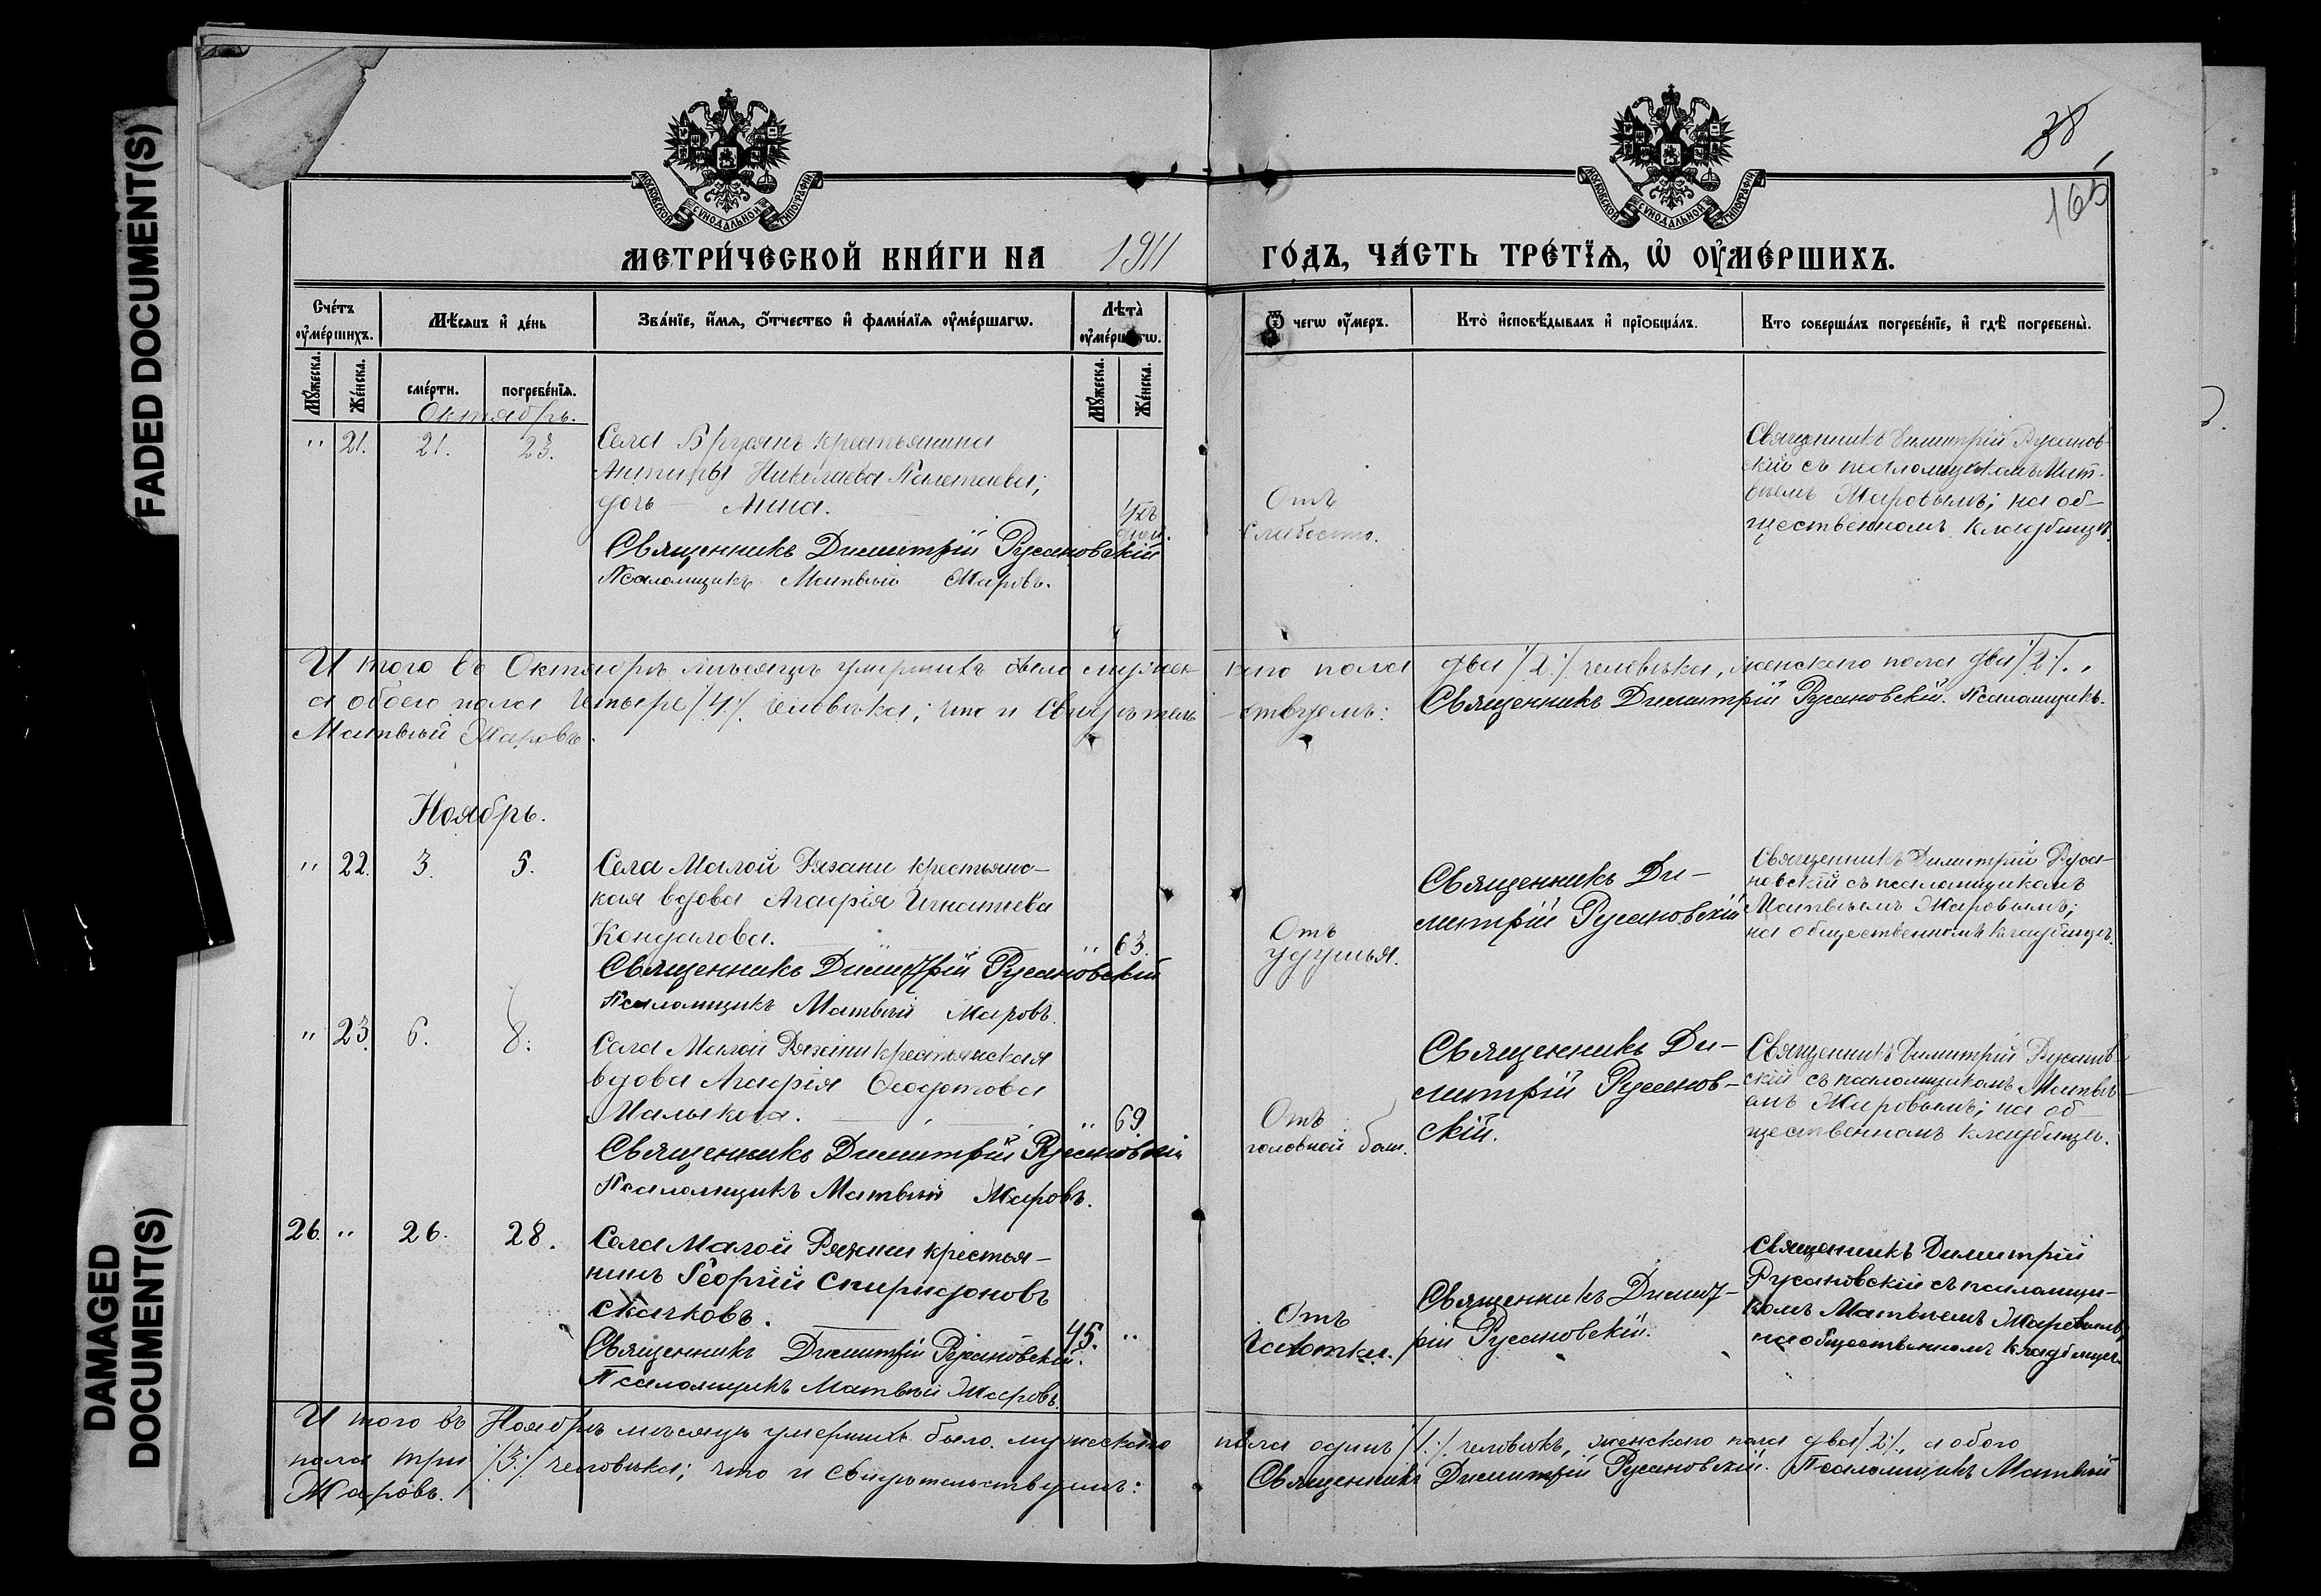 FADED DOCUMENT(S)
DAMAGED
DOCUMENT(S)
МОСКОВСКОЙ СѴНОДАЛЬНОЙ ТИПОГРАФІИ
МОСКОВСКОЙ СѴНОДАЛЬНОЙ ТИПОГРАФІИ
38
165
МЕТРИ́ЧЕСКОЙ КНИ́ГИ НА 1911 ГО́ДЪ, ЧА́СТЬ ТРЕ́ТЇѦ, Ѡ҆ ОУ҆МЕ́РШИХЪ.
Сче́тъ оу҆ме́ршихъ.
Мѣ́сяцъ и҆ де́нь
Зва́нїе, и҆́мѧ, ѻ҆́тчество и҆ фами́лїѧ оу҆ме́ршагѡ.
Лѣта̀ оу҆ме́ршагѡ.
Ѿ чегѡ оу҆́меръ.
Кто̀ и҆сповѣ́дывалъ и҆ прїѡбща́лъ.
Кто соверша́лъ погребе́нїе, и҆ гдѣ̀ погребены̀.
Мꙋ́жеска.
Же́нска.
сме́рти.
погребе́нїѧ.
Мꙋ́жеска.
Же́нска.
Октябрь.
" 21. 21. 23.
Села Брусянъ крестьянина
Николаева
дочь – Анна.
дней.
Священникъ Димитрій Русановскій
Псаломщикъ Матвѣй Жаровъ.
Отъ
слабости.
Священникъ Димитрій Русанов-
скій съ псаломщикомъ Мат-
вѣемъ Жаровымъ; на об-
щественномъ кладбищѣ.
И того въ Октябрѣ мѣсяцѣ умершихъ было мужес-каго пола два /:2:/ человѣка, женскаго пола два /:2:/.,
а обоего пола Четыре /:4:/ человѣка; что и свидѣтель-ствуемъ: Священникъ Димитрій Русановскій. Псаломщикъ
Матвѣй Жаровъ.
Ноябрь.
" 22. 3. 5.
Села Малой Рязани крестьянс-
кая вдова Агафія Игнатьева
Кондалова. " 63.
Священникъ Димитрій Русановскій
Псаломщикъ Матвѣй Жаровъ.
Отъ
удушья.
Священникъ Ди-
митрій Русановскій
Священникъ Димитрій Руса-
новскій съ псаломщикомъ
Матвѣемъ Жаровымъ;
на общественномъ кладбищѣ.
" 23. 6. 8.
Села Малой Рязани крестьянская
вдова Агафія Ѳедотова
Малыкова. " 69
Священникъ Димитрій Русановскій
Псаломщикъ Матвѣй Жаровъ.
Отъ
головной боли.
Священникъ Ди-
митрій Русанов-
скій.
Священникъ Димитрій Русанов-
скій съ псаломщикомъ Матвѣ-
емъ Жаровымъ; на об-
щественномъ кладбищѣ.
26. " 26. 28.
Села Малой Рязани крестья-
нинъ Георгій Спиридоновъ
Скачковъ. 45. "
Священникъ Димитрій Русановскій.
Псаломщикъ Матвѣй Жаровъ.
Отъ
Чахотки.
Священникъ Димит-
рій Русановскій.
Священникъ Димитрій
Русановскій съ псаломщи-
комъ Матвѣемъ Жаровымъ;
на общественномъ кладбищѣ.
И того въ Ноябрѣ мѣсяцѣ умершихъ было мужескаго пола одинъ /:1:/ человѣкъ, женскаго пола два /:2:/, а обоего
пола три /:3:/ человѣка; что и свидѣтельствуемъ: Священникъ Димитрій Русановскій. Псаломщикъ Матвѣй
Жаровъ.